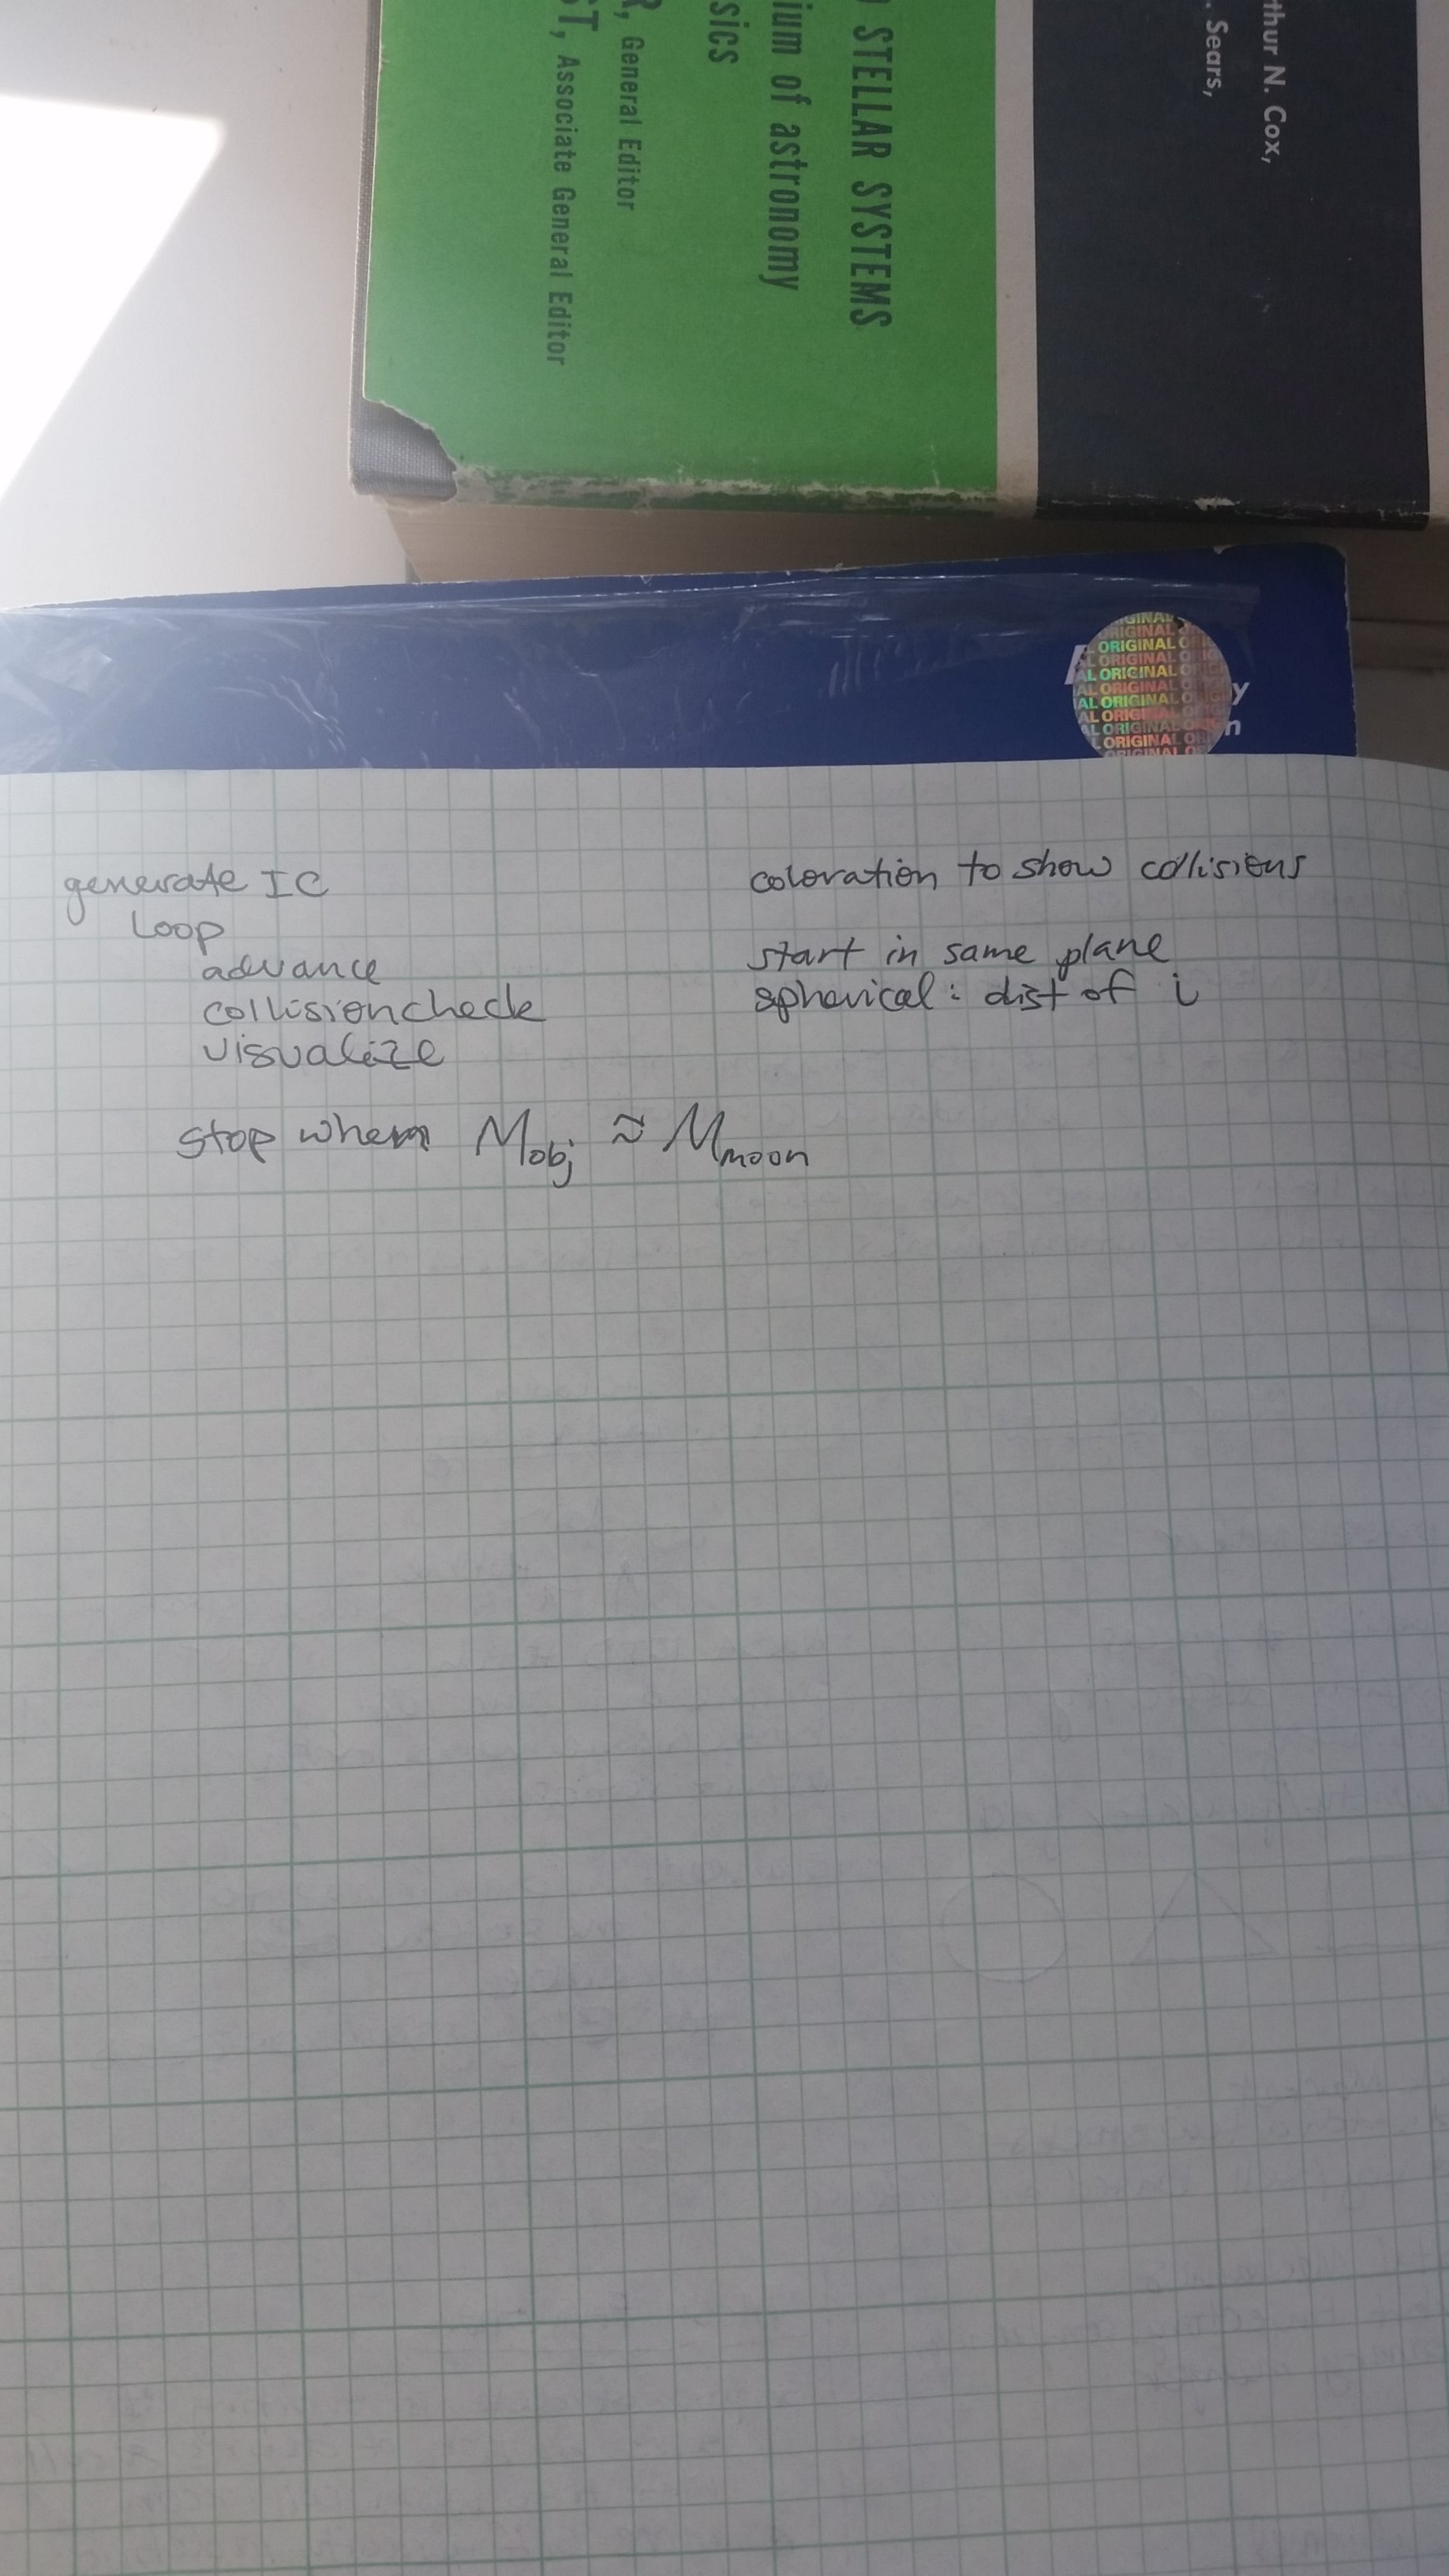 thur N. Cox,
. Sears,
STELLAR SYSTEMS
ium of astronomy
sics
R, General Editor
ST, Associate General Editor
ORIGINAL
ORIGINAL
AL ORIGINAL
AL ORIGINAL
AL ORIGINAL
AL ORIGINAL
L ORIGINAL
y
n
generate IC
Loop
advance
collisioncheck
visualize
stop when M_obj ≈ M_moon
coloration to show collisions
start in same plane
spherical: dist of i